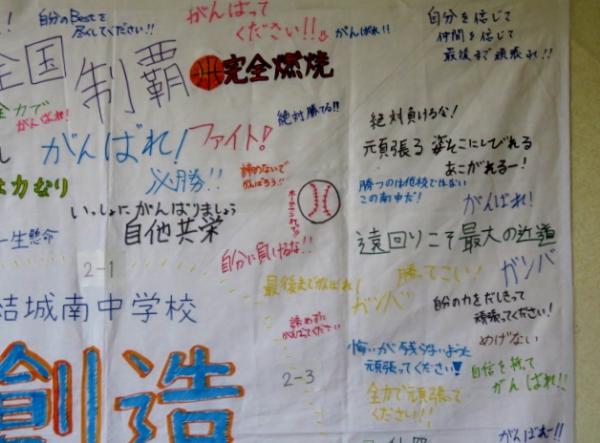 自分のBestを
尽くしてください!
がんばって
ください!!
がんばれ!!
自分を信じて
仲間を信じて
最後まで頑張れ!!
全国制覇
完全燃焼
全力で
がんばれ!
絶対勝てる!!
絶対負けるな!
がんばれ!
ファイト!
頑張る姿そこにしびれる
あこがれるー!
必勝!!
諦めないで
がんばろう!!
勝つのは他校ではない
この南中だ!
がんばれ!
いっしょにがんばりましょう
自他共栄
一生懸命
自分に負けるな!!
遠回りこそ最大の近道
2-1
最後まであばれて
勝ってこい!
ガンバ
ガンバ
自分の力をだしきって
頑張ってください!
結城南中学校
諦めずに
がんばってください
めげない
悔いが残らないように
頑張ってください!!
2-3
自信を持って
がんばれ!!
全力で頑張って
ください!!
創造
がんばれー!!